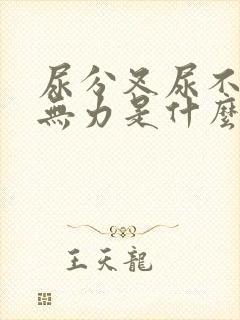 尿分叉尿不
無力是什麼
王天龍